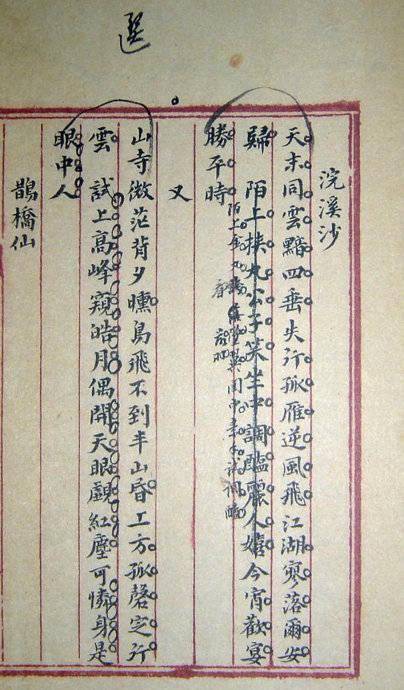 選
浣溪沙
天末同雲黯四垂失行孤雁逆風飛江湖寥落爾安
歸 陌上挾丸公子笑坐中調醢麗人嬉今宵歡宴
勝平時
陌上金丸 閨中素手試調醯
又
山寺微茫背夕曛鳥飛不到半山昏上方孤磬定行
雲 試上高峰窺皓月偶開天眼覷紅塵可憐身是
眼中人
鵲橋仙